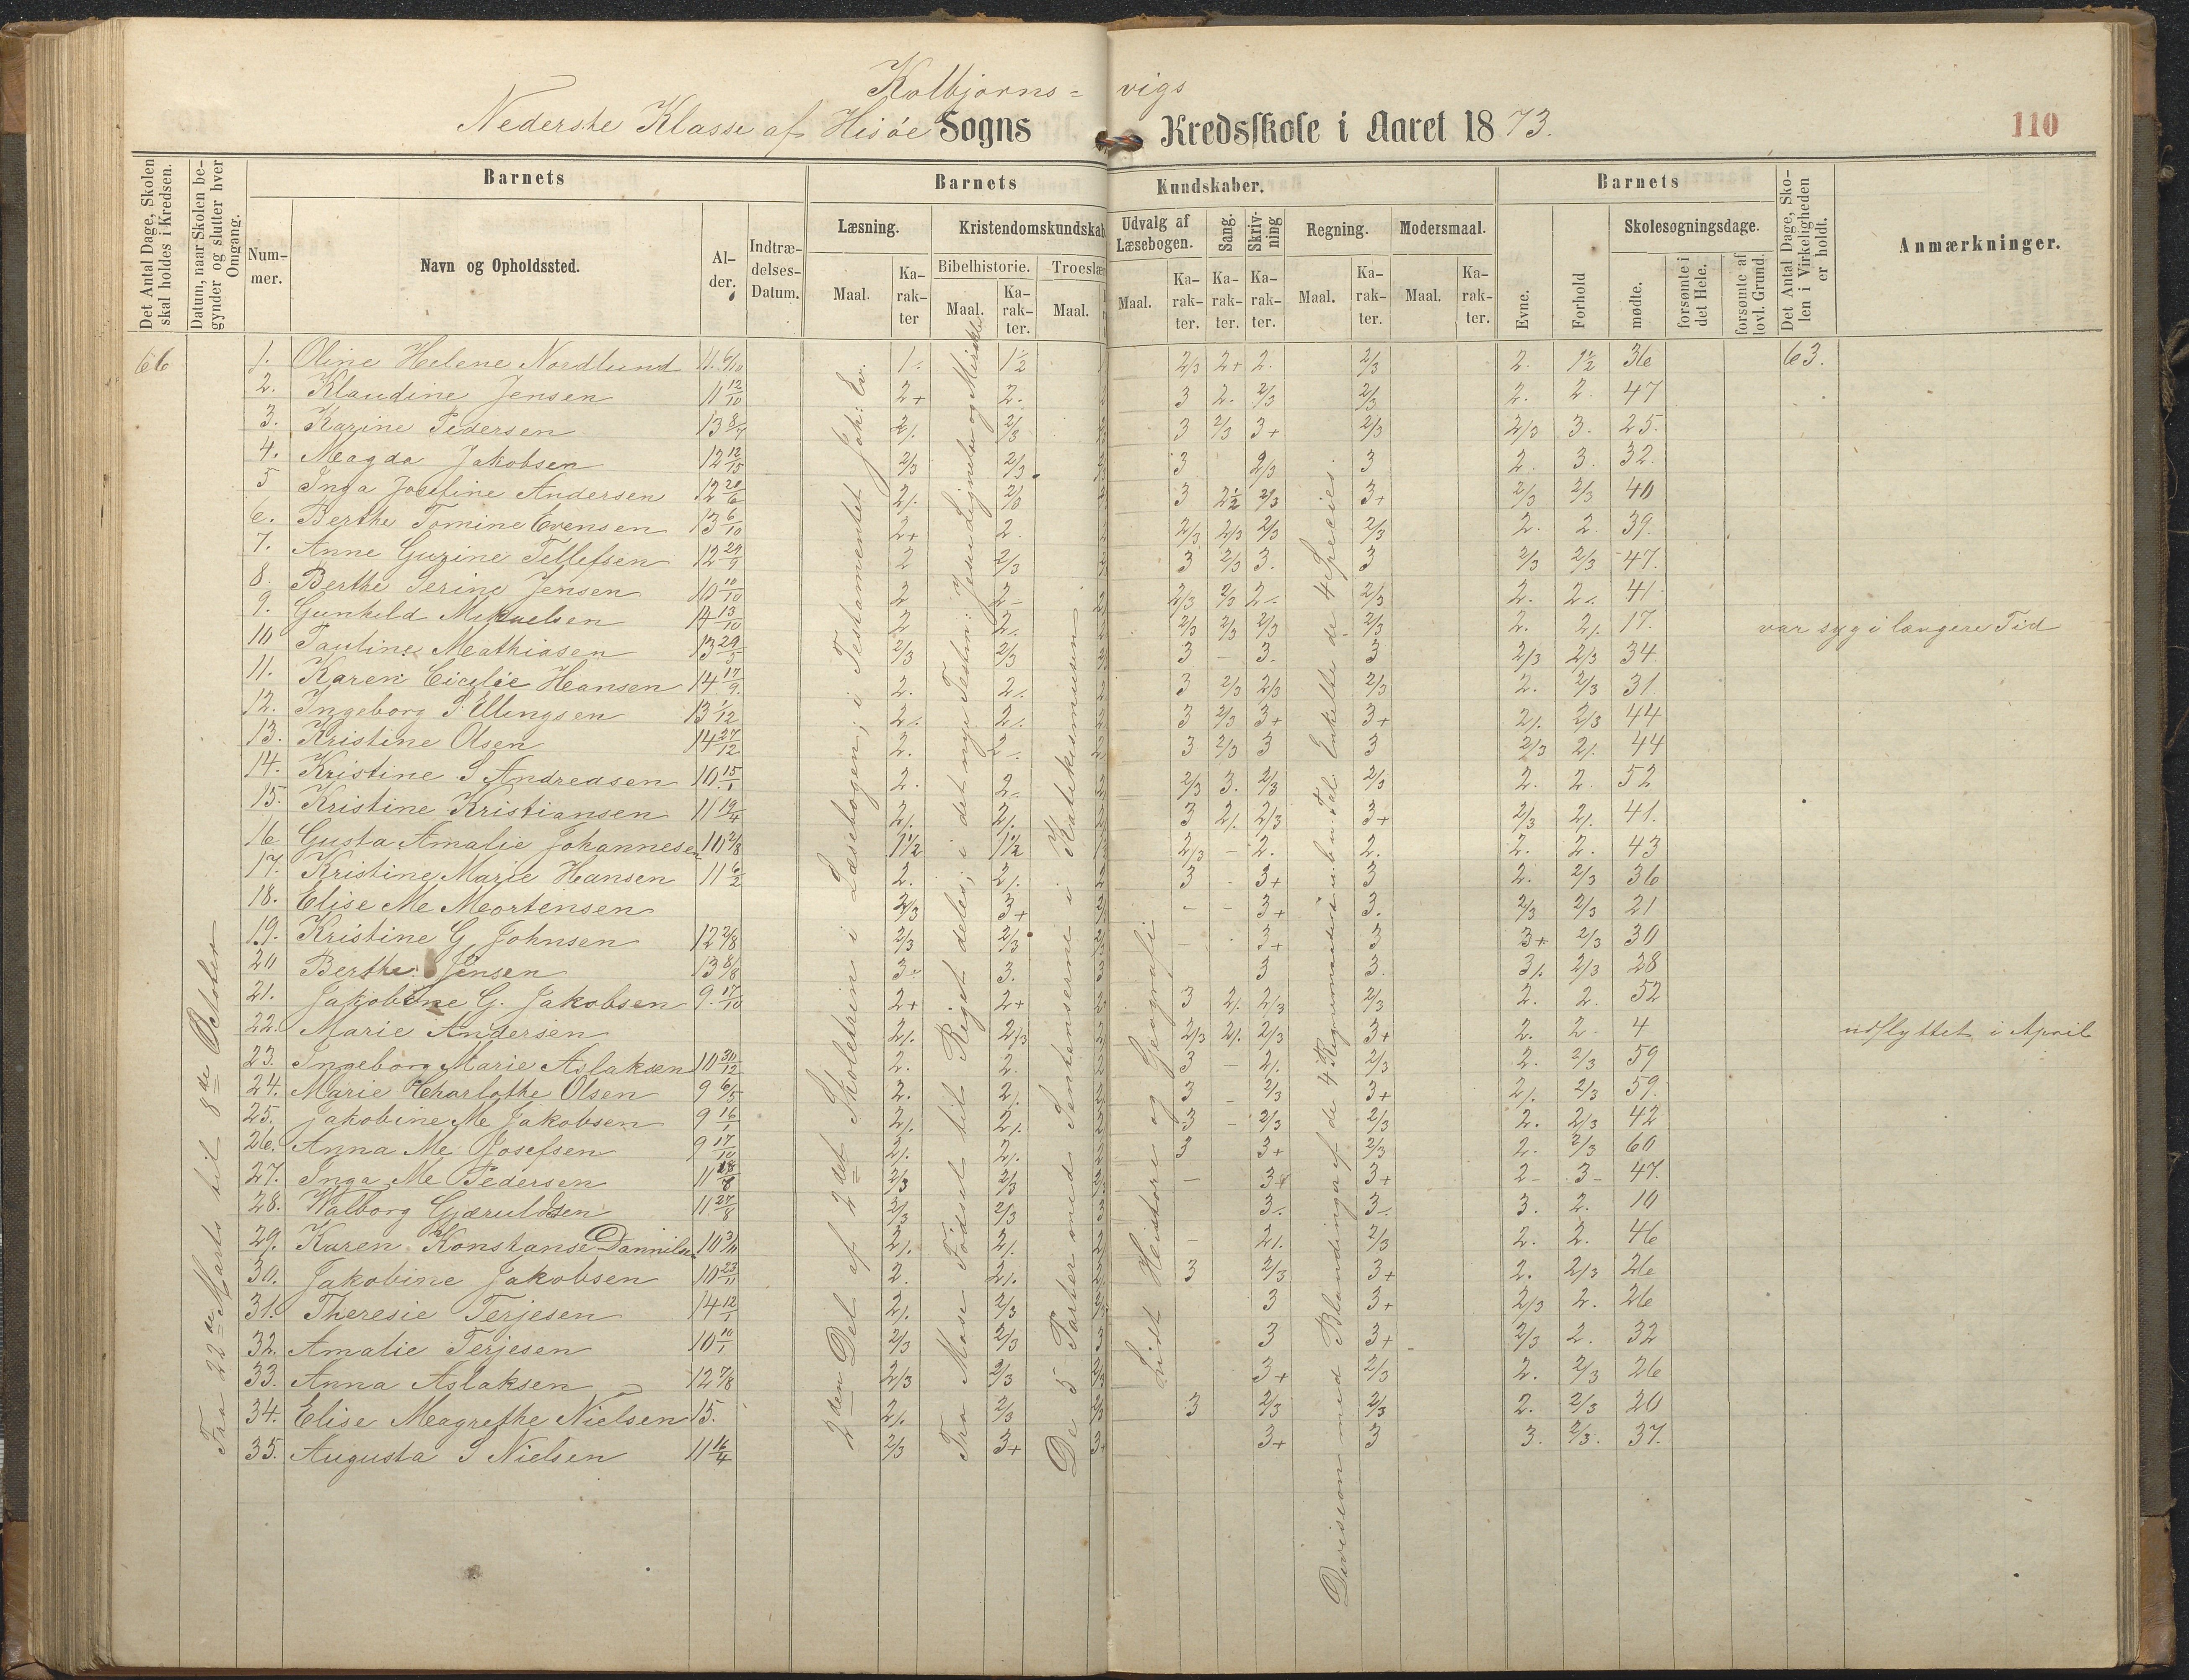 Kolbjørns= vigs
Nederste Klasse af Hisøe Sogns Kredsskole i Aaret 1873.
110
Det Antal Dage, Skolen skal holdes i Kredsen.
Datum, naar Skolen begynder og slutter hver Omgang.
Barnets
Nummer.
Navn og Opholdssted.
Alder.
Indtrædelses-Datum.
Barnets Kundskaber.
Læsning.
Maal.
Karakter
Kristendomskundskab
Bibelhistorie.
Maal.
Karakter.
Troeslær
Maal.
Udvalg af Læsebogen.
Maal.
Karakter.
Sang.
Karakter.
Skrivning
Karakter.
Regning.
Maal.
Karakter.
Modersmaal.
Maal.
Karakter.
Barnets
Evne.
Forhold
Skolesøgningsdage.
mødte.
forsømte i det Hele.
forsømte af lovl. Grund.
Det Antal Dage, Skolen i Virkeligheden er holdt.
Anmærkninger.
66
Fra 22de Marts til 8de October
2den Del af 2det Skoletrin i Læsebogen; i Testamentet Joh: Ev.
Fra Mose Fødsel til Riget deles; i det nye Testm: Jesu Lignelser og Mirakler
De 5 Parter med Sentenserne i Katekesmussen
Lidt Historie og Geografi
Devision med Blandinger af de 4 Regnemaader u. b. n. Tal. Enkelte de 4 Specier.
1. Oline Helene Nordlund 11 6/10 1. 1½ 2/3 2+ 2. 2/3 2. 1½ 36 63.
2. Klaudine Jensen 11 12/10 2+ 2. 3 2. 2/3 2/3 2. 2. 47
3. Karine Pedersen 13 8/7 2/. 2/3 3 2/3 3+ 2/3 2/3 3. 25.
4. Magda Jakobsen 12 12/15 2/3 2/3 3 2/3 3 2. 3. 32.
5 Inga Josefine Andersen 12 20/6 2/. 2/3 3 2½ 2/3 3+ 2/3 2/3 40
6. Berthe Tomine Evensen 13 6/10 2+ 2. 2/3 2/3 2/3 2/3 2. 2. 39.
7. Anne Guzine Tellefsen 12 29/9 2 2/3 3 2/3 3. 3 2/3 2/3 47.
8. Berthe Serine Jensen 10 10/10 2 2- 2/3 2/3 2. 2/3 2. 2. 41
9. Gunhild Mikaelsen 14 13/10 2 2. 2/3 2/3 2/3 2/3 2. 2/. 17. var syg i længere Tid
10 Pauline Mathiasen 13 29/5 2/3 2/3 3 - 3. 3 2/3 2/3 34.
11. Karen Cicilie Hansen 14 17/9. 2. 2. 3 2/3 2/3 2/3 2. 2/3 31.
12. Ingeborg P Ellingsen 13 1/12 2/. 2/. 3 2/3 3+ 3+ 2/. 2/3 44
13. Kristine Olsen 14 27/12 2. 2. 3 2/3 3 3 2/3 2/. 44
14. Kristine S Andreasen 10 15/1 2. 2. 2/3 3. 2/3 2/3 2. 2. 52
15. Kristine Kristiansen 11 19/4 2/. 2/. 3 2/. 2/3 3+ 2/3 2/. 41.
16 Gusta Amalie Johannesen 10 2/8 1½ 1½ 2/3 - 2. 2. 2. 2. 43
17. Kristine Marie Hansen 11 6/2 2. 2/. 3 - 3+ 3 2. 2/3 36
18. Elise Me Mortensen 2/3 3+ - - 3+ 3. 2/3 2/3 21
19. Kristine G. Johnsen 12 2/8 2/3 2/3 - 3+ 3 3+ 2/3 30
20 Berthe Jensen 13 8/8 3. 3. 3 3. 3/. 2/3 28
21. Jakobine G. Jakobsen 9. 17/10 2+ 2+ 3 2/. 2/3 2/3 2. 2. 52
22. Marie Andersen 2/. 2/3 2/3 2/. 2/3 3+ 2. 2. 4 udflyttet i April
23. Ingeborg Marie Aslaksen 10 30/12 2. 2. 3 - 2/. 2/3 2. 2/3 59
24. Marie Charlothe Olsen 9 6/5 2. 2/. 3 - 2/3 3+ 2/. 2/3 59.
25. Jakobine Me Jakobsen 9 16/1 2/. 2/. 3 - 2/3 2/3 2. 2/3 42
26. Anna Me Josefsen 9 17/10 2/. 2/. 3 3+ 2/3 2. 2/3 60
27. Inga Me Pedersen 11 18/8 2/3 2/3 - 3+ 3+ 2- 3- 47.
28. Walborg Gjæruldsen 11 27/8 2/3 2/3 3. 3. 3. 2. 10
29. Karen Konstanse Dannilsen 10 3/11 2/. 2/. - 2/. 2/3 2. 2. 46
30. Jakobine Jakobsen 10 23/11 2. 2/. 3 2/3 3+ 2. 2/3 26
31. Theresie Terjesen 14 12/1 2/. 2/3 3 3+ 2/3 2. 26
32. Amalie Terjesen 10 10/1 2/3 2/3 3 3+ 2/3 2. 32
33. Anna Aslaksen 12 7/8 2/3 2/3 3+ 2/3 2. 2/3 26
34. Elise Magrethe Nielsen 15. 2/. 2/3 3 2/3 2/3 2. 2/3 20
35. Augusta S Nielsen 11 16/4 2/3 3+ 3+ 3+ 3 3. 2/3. 37.